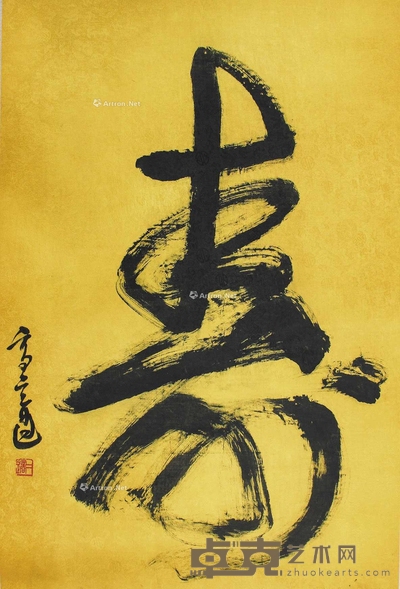 寿
Artron.Net
Artron.Net
Artron.Net
卓克艺术网
zhuokearts.com